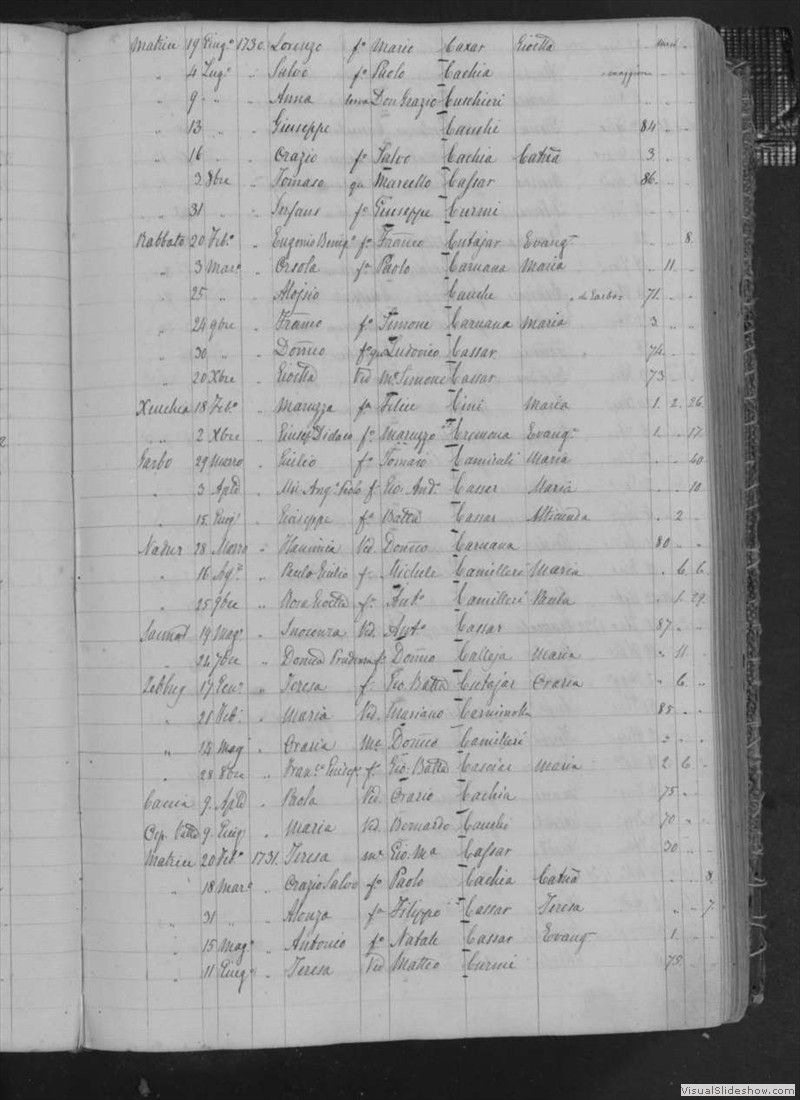 Matrice 19 Giug.o 1730 Lorenzo f.o Mario Caxar Gioetta
" 4 Lug.o " Salvo f.o Paolo Cachia
" 9 " " Anna Don Grazio Cuschieri
" 13 " Giuseppe Cauchi 84
" 16 " Orazio f.o Salvo Cachia Catna 3
" 3 8bre " Tomaso qu Marcello Cassar 86
" 31 " f.o Giuseppe Curmi
Rabbato 20 Feb.o " Eugenio f.o Franco Cutajar Evang. 8
" 3 Mar.o " Orsola f.a Paolo Caruana Maria 11
" 25 " Alojsio Cauchi 71
" 24 9bre " Franco f.o Simone Caruana Maria 3
" 30 " " Domco f.o qu Ludovico Cassar 74
" 20 Xbre " Gioetta Vid M.o Simone Cassar 73
Xeuchia 18 Feb.o " Maruzza f.a Felice Cini Maria 1 2 26
" 2 Xbre " Didaco f.o Maruzzo Cremona Evang. 1 17
Garbo 29 Marzo " Giulio f.o Tomaso Camilleri Maria 40
" 3 Aple " Mic Ang.o Paolo f. Gio. And.a Casser Maria 10
" 15 Giug. " Giuseppe f.o Batta Cassar 2
Nadur 28 Marzo " Flaminia Vid. Domco Caruana 80
" 16 Ag.o " Paulo Giulio f. Michele Camilleri Maria 6 6
" 25 9bre " Rosa Gioetta f.a Ant.o Camilleri Paula 1 29
19 Mag.o " Inocenza Vid. Ant.o Cassar 87
" 24 7bre " Domca Prudenza f.a Domco Calleja Maria 11
Zebbug 17 Gen.o " Teresa f. Gio Batta Cutajar Grazia 6
" 21 Feb. " Maria Vid. Mariano 85
" 14 Mag " Grazia M.e Domco Camilleri
" 28 8bre " Fran.co Giusep.e f.o Gio. Batta Maria 2 6
Caccia 9 Aple " Paola Vid Orazio Cachia 75
9 Giug " Maria Vd. Bernardo Cauchi 70
Matrice 20 Feb.o 1731 Teresa m.e Gio. M.a Cassar 30
" 18 Mar.o " Orazio Salvo f.o Paolo Cachia Catna 8
" 31 " " Alonza f.a Filippo Cassar Teresa 7
" 15 Mag.o " Antonio f.o Natale Cassar Evang. 1
" 11 Giug.o " Teresa Vid Matteo Curmi 75
VisualSlideshow.com